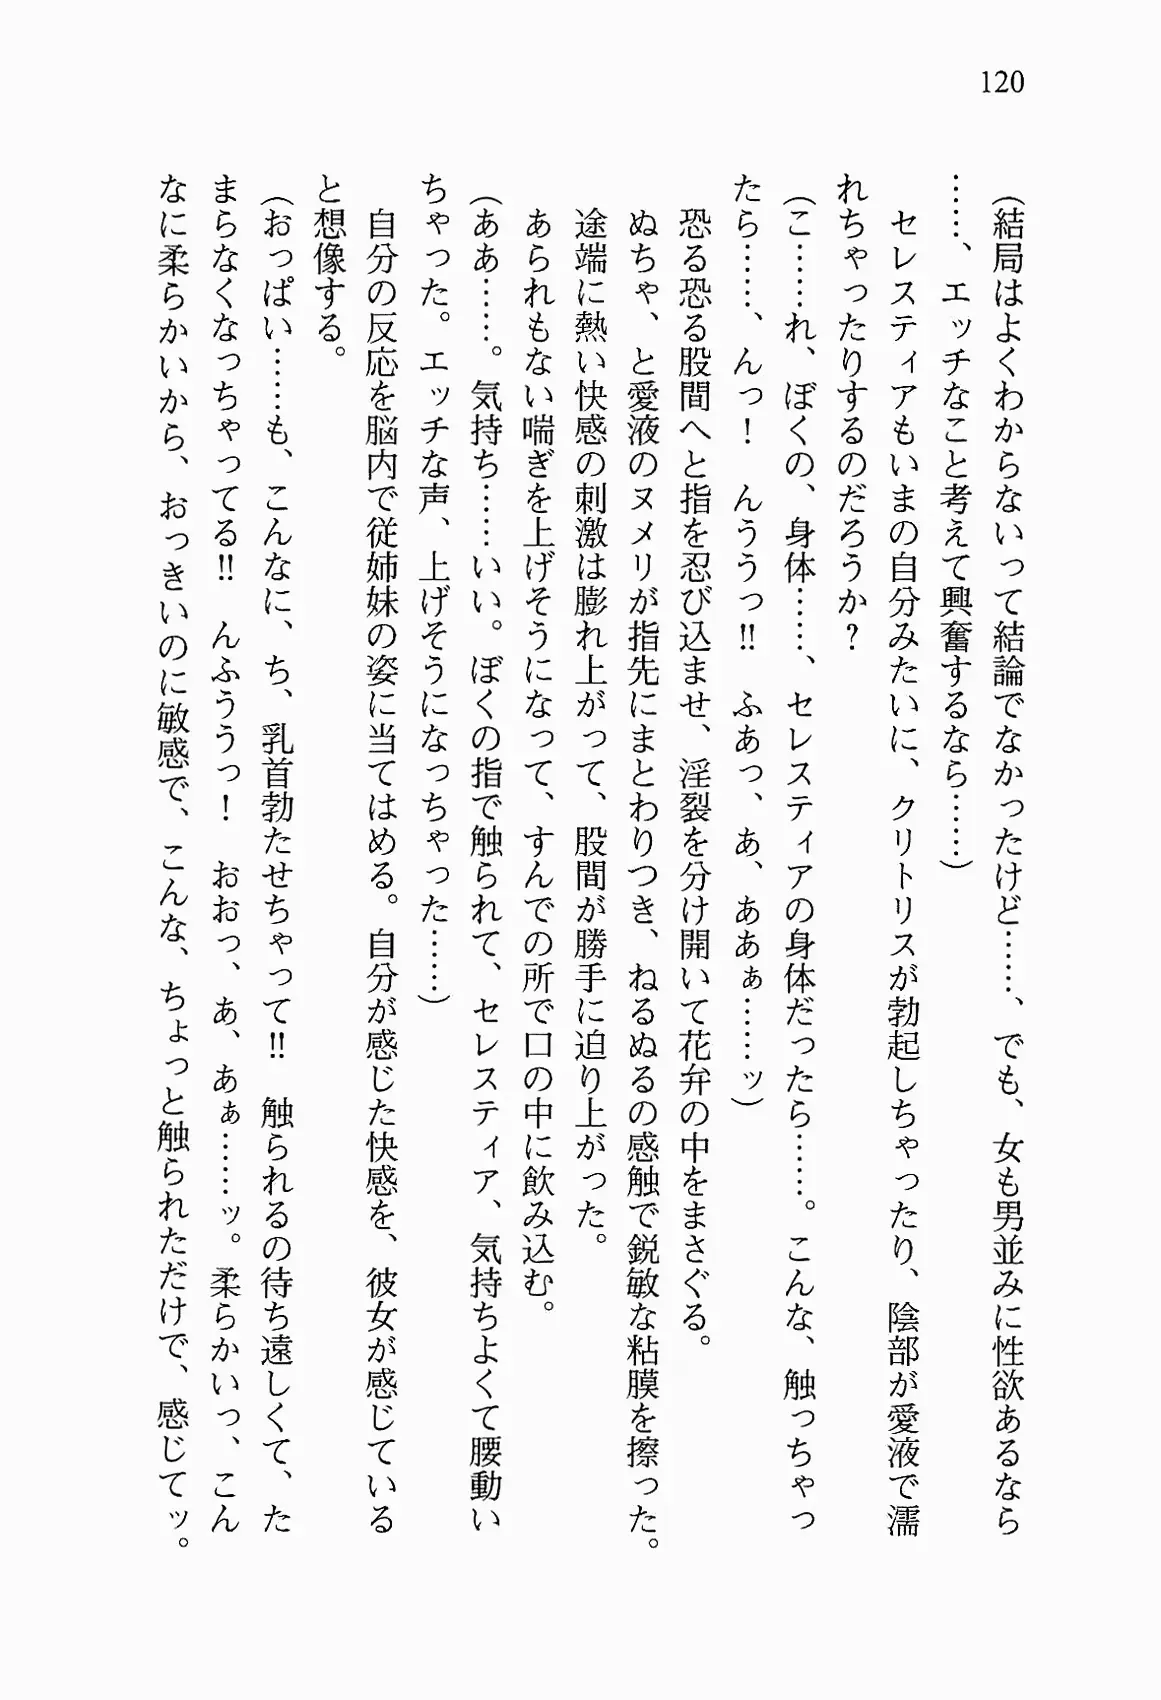 120
(結局はよくわからないって結論でなかったけど……、でも、女も男並みに性欲あるなら
……、エッチなこと考えて興奮するなら……)
セレスティアもいまの自分みたいに、クリトリスが勃起しちゃったり、陰部が愛液で濡
れちゃったりするのだろうか?
(こ……れ、ぼくの、身体……、セレスティアの身体だったら……。こんな、触っちゃっ
たら……、んっ! んううっ!! ふあっ、あ、ああぁ……ッ)
恐る恐る股間へと指を忍び込ませ、淫裂を分け開いて花弁の中をまさぐる。
ぬちゃ、と愛液のヌメリが指先にまとわりつき、ねるぬるの感触で鋭敏な粘膜を擦った。
途端に熱い快感の刺激は膨れ上がって、股間が勝手に迫り上がった。
あられもない喘ぎを上げそうになって、すんでの所で口の中に飲み込む。
(ああ……。気持ち……いい。ぼくの指で触られて、セレスティア、気持ちよくて腰動い
ちゃった。エッチな声、上げそうになっちゃった……)
自分の反応を脳内で従姉妹の姿に当てはめる。自分が感じた快感を、彼女が感じている
と想像する。
(おっぱい……も、こんなに、ち、乳首勃たせちゃって!! 触られるの待ち遠しくて、た
まらなくなっちゃってる!! んふううっ! おおっ、あ、あぁ……ッ。柔らかいっ、こん
なに柔らかいから、おっきいのに敏感で、こんな、ちょっと触られただけで、感じてッ。